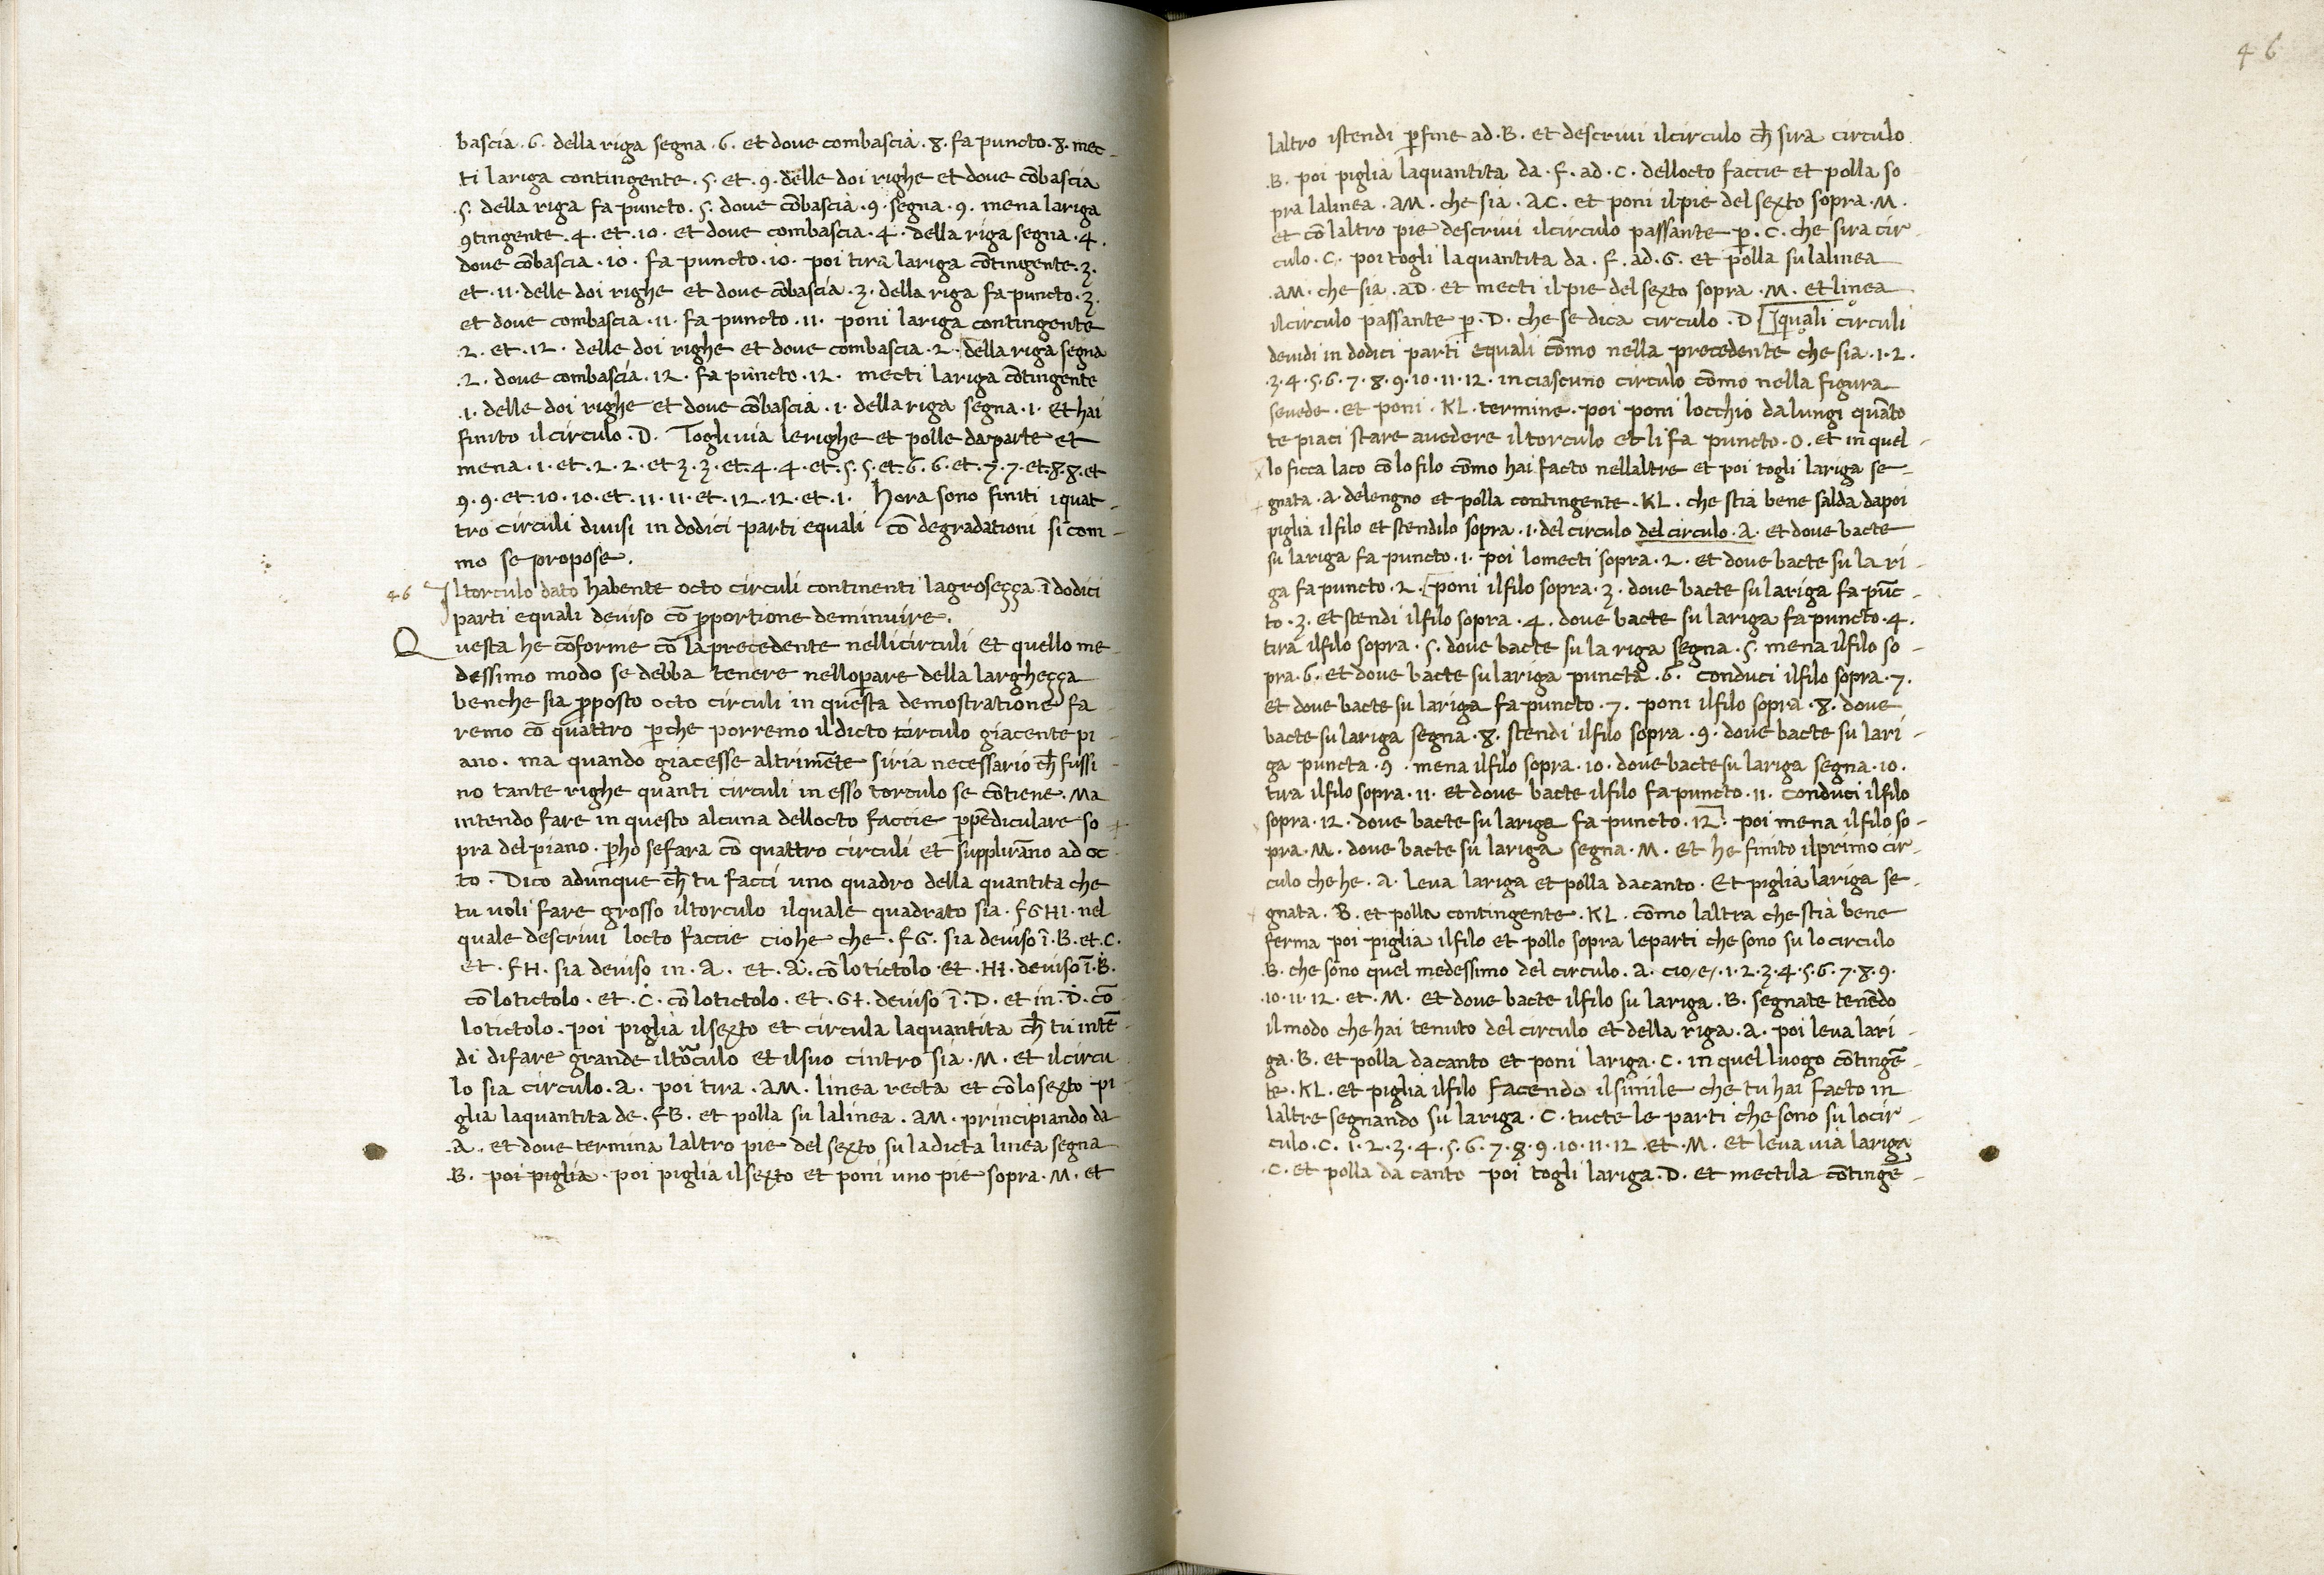 bascia .6. della riga segna .6. et dove combascia .8. fa puncto .8. mec-
ti lariga contingente .5. et .9. delle doi righe et dove cōbascia
.5. della riga fa puncto .5. dove cōbascia .9. segna .9. mena lariga
9tingente .4. et .10. et dove combascia .4. della riga segna .4.
dove cōbascia .10. fa puncto .10. poi tira lariga cōtingente .3.
et .11. delle doi righe et dove cōbascia .3. della riga fa puncto .3.
et dove combascia .11. fa puncto .11. poni lariga contingente
.2. et .12. delle doi righe et dove combascia .2. della riga segna
.2. dove combascia .12. fa puncto .12. mecti lariga cōtingente
.1. delle doi righe et dove cōbascia .1. della riga segna .1. et hai
finito il circulo .D. Togli via lerighe et polle daparte et
mena .1. et .2. 2. et 3. 3. et .4. 4. et .5. 5. et .6. 6. et .7. 7. et .8. 8. et
9. 9. et .10. 10. et .11. 11. et .12. 12. et .1. hora sono finiti iquat-
tro circuli divisi in dodici parti equali cō degradationi si com-
mo se propose.
46 Il torculo dato habente octo circuli continenti lagrosecça ī dodici
parti equali deviso cō proportione deminuire.
Questa he cōforme cō la precedente nelli circuli et quello me-
dessimo modo se debba tenere nellopare della larghecça
benche sia proposto octo circuli in questa demostratione fa-
remo cō quattro perche porremo il dicto circulo giacente pi-
ano. ma quando giacesse altrimēte siria necessario ch̄ fussi-
no tante righe quanti circuli in esso torculo se cōtiene. Ma
intendo fare in questo alcuna dellocto faccie ppēdiculare so-
pra del piano. pho sefara cō quattro circuli et supplirāno ad oc-
to. Dico adunque ch̄ tu facci uno quadro della quantita che
tu voli fare grosso il torculo ilquale quadrato sia .FGHI. nel
quale descrivi locto faccie ciohe che .FG. sia deviso ī .B. et .C.
et .FH. sia deviso in .A. et .A. cō lo tictolo et .HI. deviso ī .B.
cō lo tictolo. et .C. cō lo tictolo. et .GI. deviso ī .D. et in .D. cō
lo tictolo. poi piglia il sexto et circula laquantita ch̄ tu intē-
di di fare grande il torculo et il suo cintro sia .M. et il circu-
lo sia circulo .A. poi tira .AM. linea recta et cō lo sexto pi-
glia laquantita de .FB. et polla su lalinea .AM. principiando da
.A. et dove termina laltro pie del sexto su la dicta linea segna
.B. poi piglia . poi piglia il sexto et poni uno pie sopra .M. et
46
laltro istendi per fine ad .B. et descrivi il circulo ch̄ sira circulo
.B. poi piglia laquantita da .F. ad .C. dellocto faccie et polla so
pra lalinea .AM. che sia .AC. et poni il pie del sexto sopra .M.
et cō laltro pie descrivi il circulo passante p .C. che sira cir-
culo .C. poi togli laquantita da .F. ad .G. et polla su lalinea
.AM. che sia .AD. et mecti il pie del sexto sopra .M. et linea
il circulo passante p .D. che se dica circulo .D [ ]quali circuli
devidi in dodici parti equali cōmo nella precedente che sia .1.2.
.3.4.5.6.7.8.9.10.11.12. in ciascuno circulo cōmo nella figura
sevede. et poni .KL. termine. poi poni locchio da lungi quāto
te piaci stare avedere il torculo et li fa puncto .O. et in quel-
lo ficca laco cō lo filo cōmo hai facto nellaltre et poi togli lariga se-
gnata .A. delengno et polla contingente .KL. che stia bene salda dapoi
piglia il filo et stendilo sopra .1. del circulo del circulo .A. et dove bacte
su lariga fa puncto .1. poi lomecti sopra .2. et dove bacte su la ri-
ga fa puncto .2. [poni il filo sopra .3. dove bacte su lariga fa pūc-
to .3. et stendi il filo sopra .4. dove bacte su lariga fa puncto .4.
tira il filo sopra .5. dove bacte su la riga segna .5. mena il filo so-
pra .6. et dove bacte su lariga puncta .6. conduci il filo sopra .7.
et dove bacte su lariga fa puncto .7. poni il filo sopra .8. dove
bacte su lariga segna .8. stendi il filo sopra .9. dove bacte su lari-
ga puncta .9. mena il filo sopra .10. dove bacte su lariga segna .10.
tira il filo sopra .11. et dove bacte il filo fa puncto .11. conduci il filo
sopra .12. dove bacte su lariga fa puncto .12]. poi mena il filo so-
pra .M. dove bacte su lariga segna .M. et he finito il primo cir-
culo che he .A. leva lariga et polla dacanto. Et piglia lariga se-
gnata .B. et polla contingente .KL. cōmo laltra che stia bene
ferma poi piglia il filo et pollo sopra leparti che sono su lo circulo
.B. che sono quel medessimo del circulo .A. cio/e/ .1.2.3.4.5.6.7.8.9.
.10.11.12. et .M. et dove bacte il filo su lariga .B. segnate tenēdo
il modo che hai tenuto del circulo et della riga .A. poi leva lari-
ga .B. et polla dacanto et poni lariga .C. in quel luogo cōtingē-
te .KL. et piglia il filo facendo il simile che tu hai facto in
laltre segnando su lariga .C. tucte le parti che sono su lo cir-
culo .C. 1.2.3.4.5.6.7.8.9.10.11.12 et .M. et leva via lariga
.C. et polla da canto poi togli lariga .D. et mectila cōtingē-